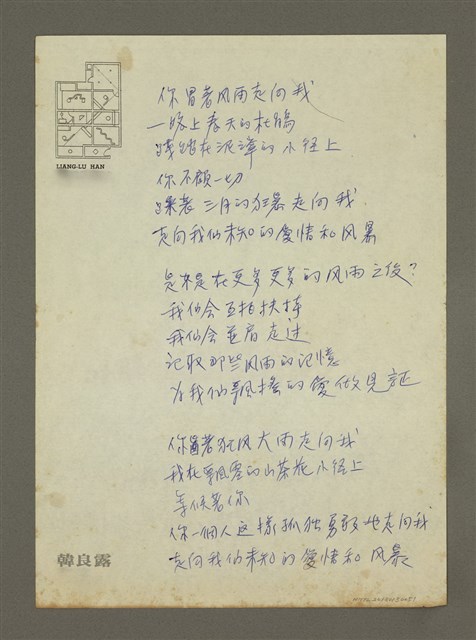 LIANG-LU HAN
你冒着风雨走向我
一路上春天的杜鵑
残踏在泥濘的小径上
你不顧一切
踩著三月的狂暴走向我
走向我们未知的愛情和风暴
是不是在更多更多的风雨之後？
我们会互相扶持
我们会並肩走过
記取那些风雨的记憶
为我们飄搖的愛做見証
你冒着狂风大雨走向我
我在飄零的山茶花小径上
等候著你
你一個人这樣孤独勇敢地走向我
走向我们未知的愛情和风暴
韓良露